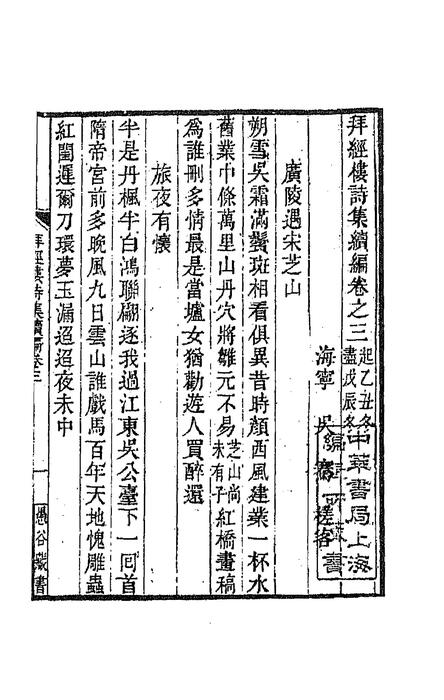 拜經樓詩集續編卷之三 起乙丑冬盡戊辰冬
中華書局上海
海寧 吳騫 槎客
廣陵遇宋芝山
朔雪吳霜滿鬢斑相看俱異昔時顏西風建業一杯水
舊業中條萬里山丹穴將雛元不易芝山尚未有子紅橋畫稿
爲誰刪多情最是當壚女猶勸遊人買醉還
旅夜有懷
半是丹楓半白鴻聯翩逐我過江東吳公臺下一回首
隋帝宮前多晚風九日雲山誰戲馬百年天地愧雕蟲
紅閨遲爾刀環夢玉漏迢迢夜未中
拜經樓詩集續編卷三 一 愚谷叢書